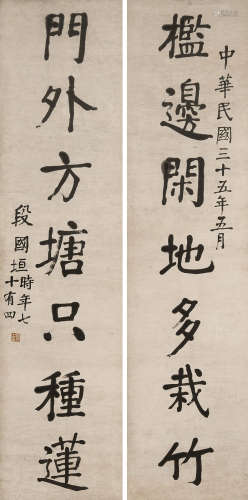 中華民國三十五年五月
檻邊閑地多栽竹
門外方塘只種蓮
段國垣時年七
十有四